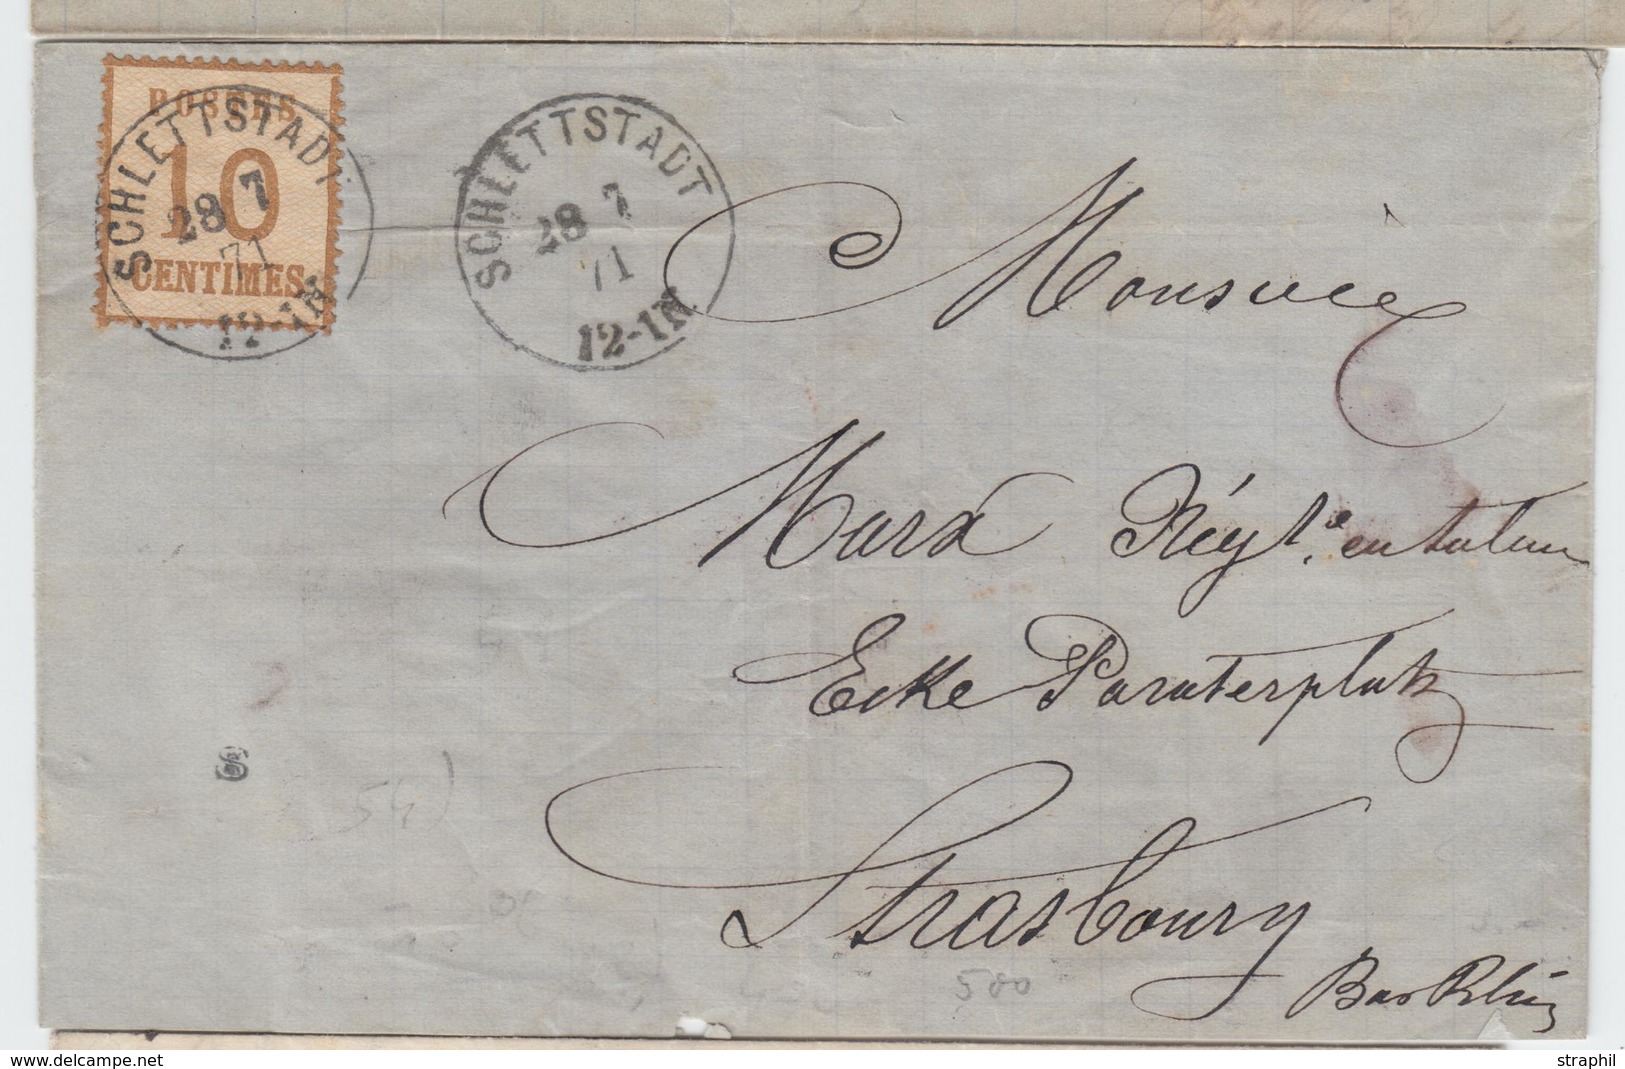 POSTES
10
CENTIMES
SCHLETTSTADT
28 7
71
12-1N
SCHLETTSTADT
28 7
71
12-1N
Monsieur
Marx Négt. en tabac
Ecke Paraterplatz
Strasbourg
500
Bas Rhin
delcampe.net
straphil